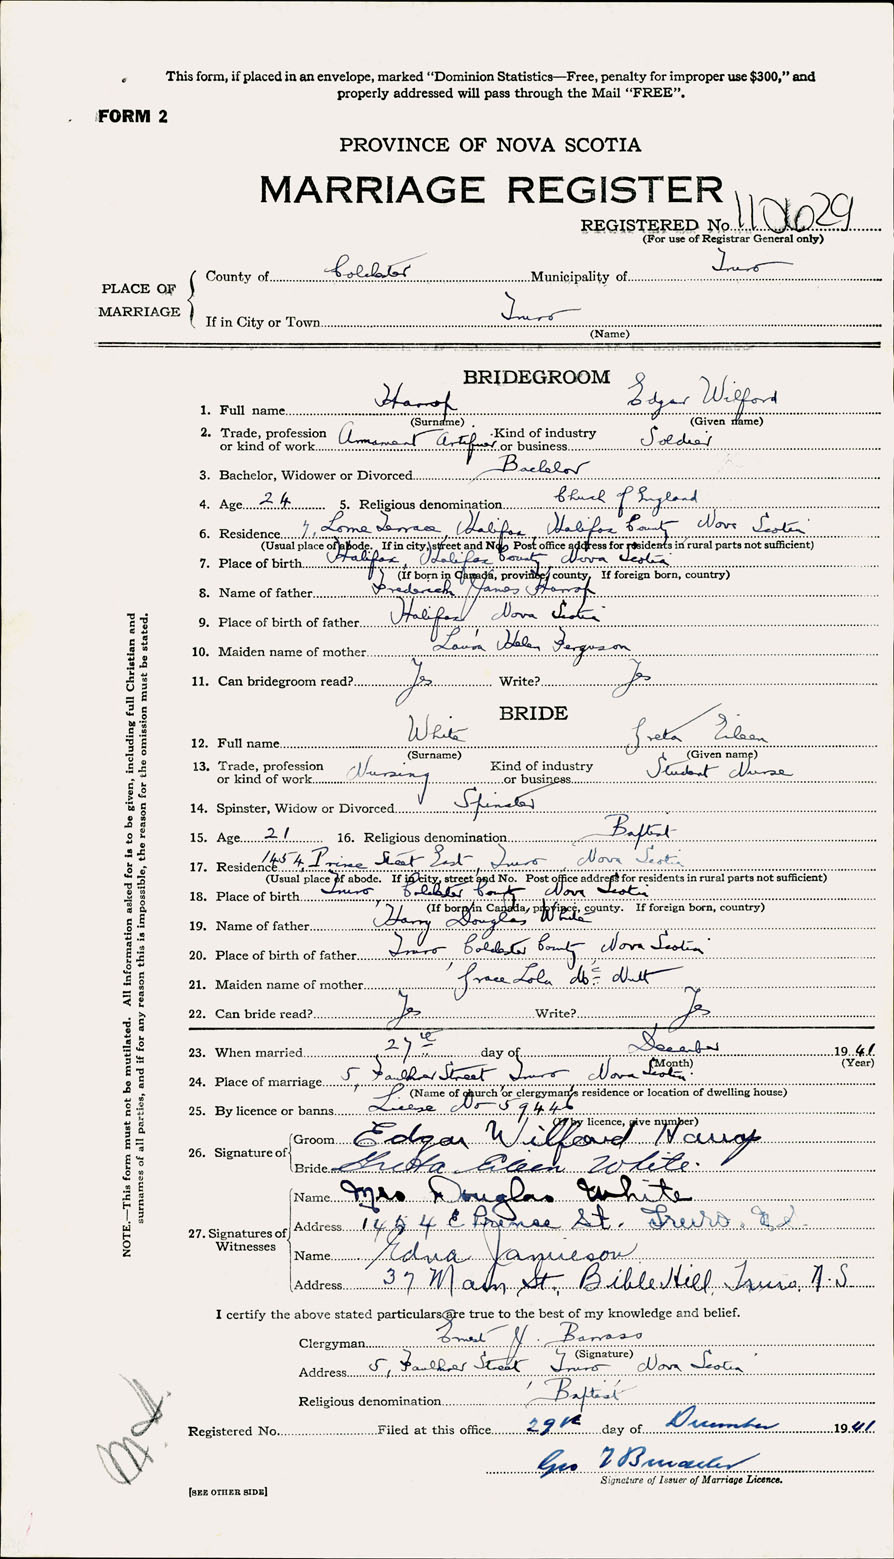 This form, if placed in an envelope, marked “Dominion Statistics—Free, penalty for improper use $300,” and
properly addressed will pass through the Mail “FREE”.
FORM 2
PROVINCE OF NOVA SCOTIA
MARRIAGE REGISTER
REGISTERED No. 110629
(For use of Registrar General only)
PLACE OF MARRIAGE
County of Colchester Municipality of Truro
If in City or Town Truro
(Name)
BRIDEGROOM
1. Full name Harrop Edgar Wilford
(Surname) (Given name)
2. Trade, profession or kind of work Armament Artificer Kind of industry or business Soldier
3. Bachelor, Widower or Divorced Bachelor
4. Age 24 5. Religious denomination Church of England
6. Residence 7, Lorne Terrace, Halifax, Halifax County Nova Scotia
(Usual place of abode. If in city, street and No. Post office address for residents in rural parts not sufficient)
7. Place of birth Halifax, Halifax County Nova Scotia
(If born in Canada, province, county. If foreign born, country)
8. Name of father Frederick James Harrop
9. Place of birth of father Halifax Nova Scotia
10. Maiden name of mother Laura Helen Ferguson
11. Can bridegroom read? Yes Write? Yes
BRIDE
12. Full name White Greta Eileen
(Surname) (Given name)
13. Trade, profession or kind of work Nursing Kind of industry or business Student Nurse
14. Spinster, Widow or Divorced Spinster
15. Age 21 16. Religious denomination Baptist
17. Residence 1454, Prince Street East, Truro, Nova Scotia
(Usual place of abode. If in city, street and No. Post office address for residents in rural parts not sufficient)
18. Place of birth Truro Colchester County Nova Scotia
(If born in Canada, province, county. If foreign born, country)
19. Name of father Harry Douglas White
20. Place of birth of father Truro Colchester County Nova Scotia
21. Maiden name of mother Grace Lola Mc Nutt
22. Can bride read? Yes Write? Yes
23. When married 27th day of December 1941
(Month) (Year)
24. Place of marriage 5, Faulkner Street Truro Nova Scotia
(Name of church or clergyman's residence or location of dwelling house)
25. By licence or banns License No 59446
(If by licence, give number)
26. Signature of
Groom Edgar Wilford Harrop
Bride Gretta Eileen White.
27. Signatures of Witnesses
Name Mrs Douglas White
Address 1454 E Prince St. Truro. N.S.
Name Edna Jamieson
Address 37 Main St, Bible Hill, Truro, N.S
I certify the above stated particulars are true to the best of my knowledge and belief.
Clergyman Ernest Barrass
(Signature)
Address 5, Faulkner Street Truro Nova Scotia
Religious denomination Baptist
Registered No. Filed at this office 29th day of December 1941
Geo
Signature of Issuer of Marriage Licence.
[SEE OTHER SIDE]
NOTE.—This form must not be mutilated. All information asked for is to be given, including full Christian and
surnames of all parties, and if for any reason this is impossible, the reason for the omission must be stated.